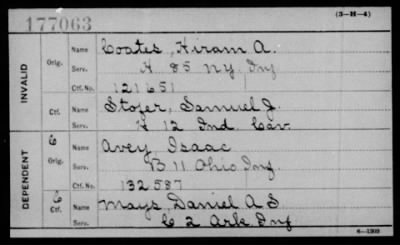 177063
(3-H-4)
INVALID
Orig.
Name Coates, Hiram A.
Serv. H 85 N.Y. Inf
Ctf. No. 121651
Ctf.
Name Stoyer, Samuel J.
Serv. H 12 Ind Cav.
DEPENDENT
Orig.
Name Avey, Isaac
Serv. B 11 Ohio Inf
Ctf. No. 132587
Ctf.
Name Mays, Daniel A S.
Serv. C 2 Ark Inf